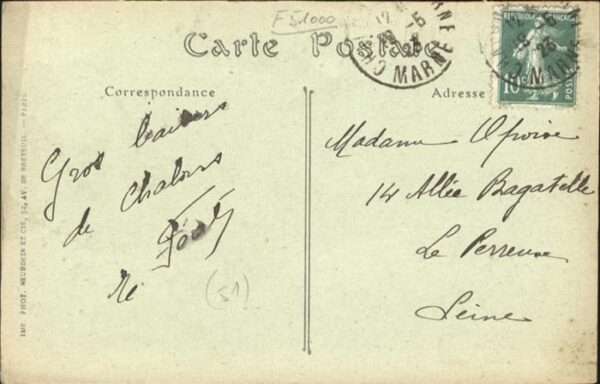 F51000
Carte Postale
Correspondance
Adresse
Gros baisers
de Chalons
(51)
Madame
14 Allée Bagatelle
Le Perreux
Seine
MARNE
RÉPUBLIQUE FRANÇAISE
10c
POSTES
IMP. PHOT. NEURDEIN ET CIE, 52, AV. DE BRETEUIL. — PARIS